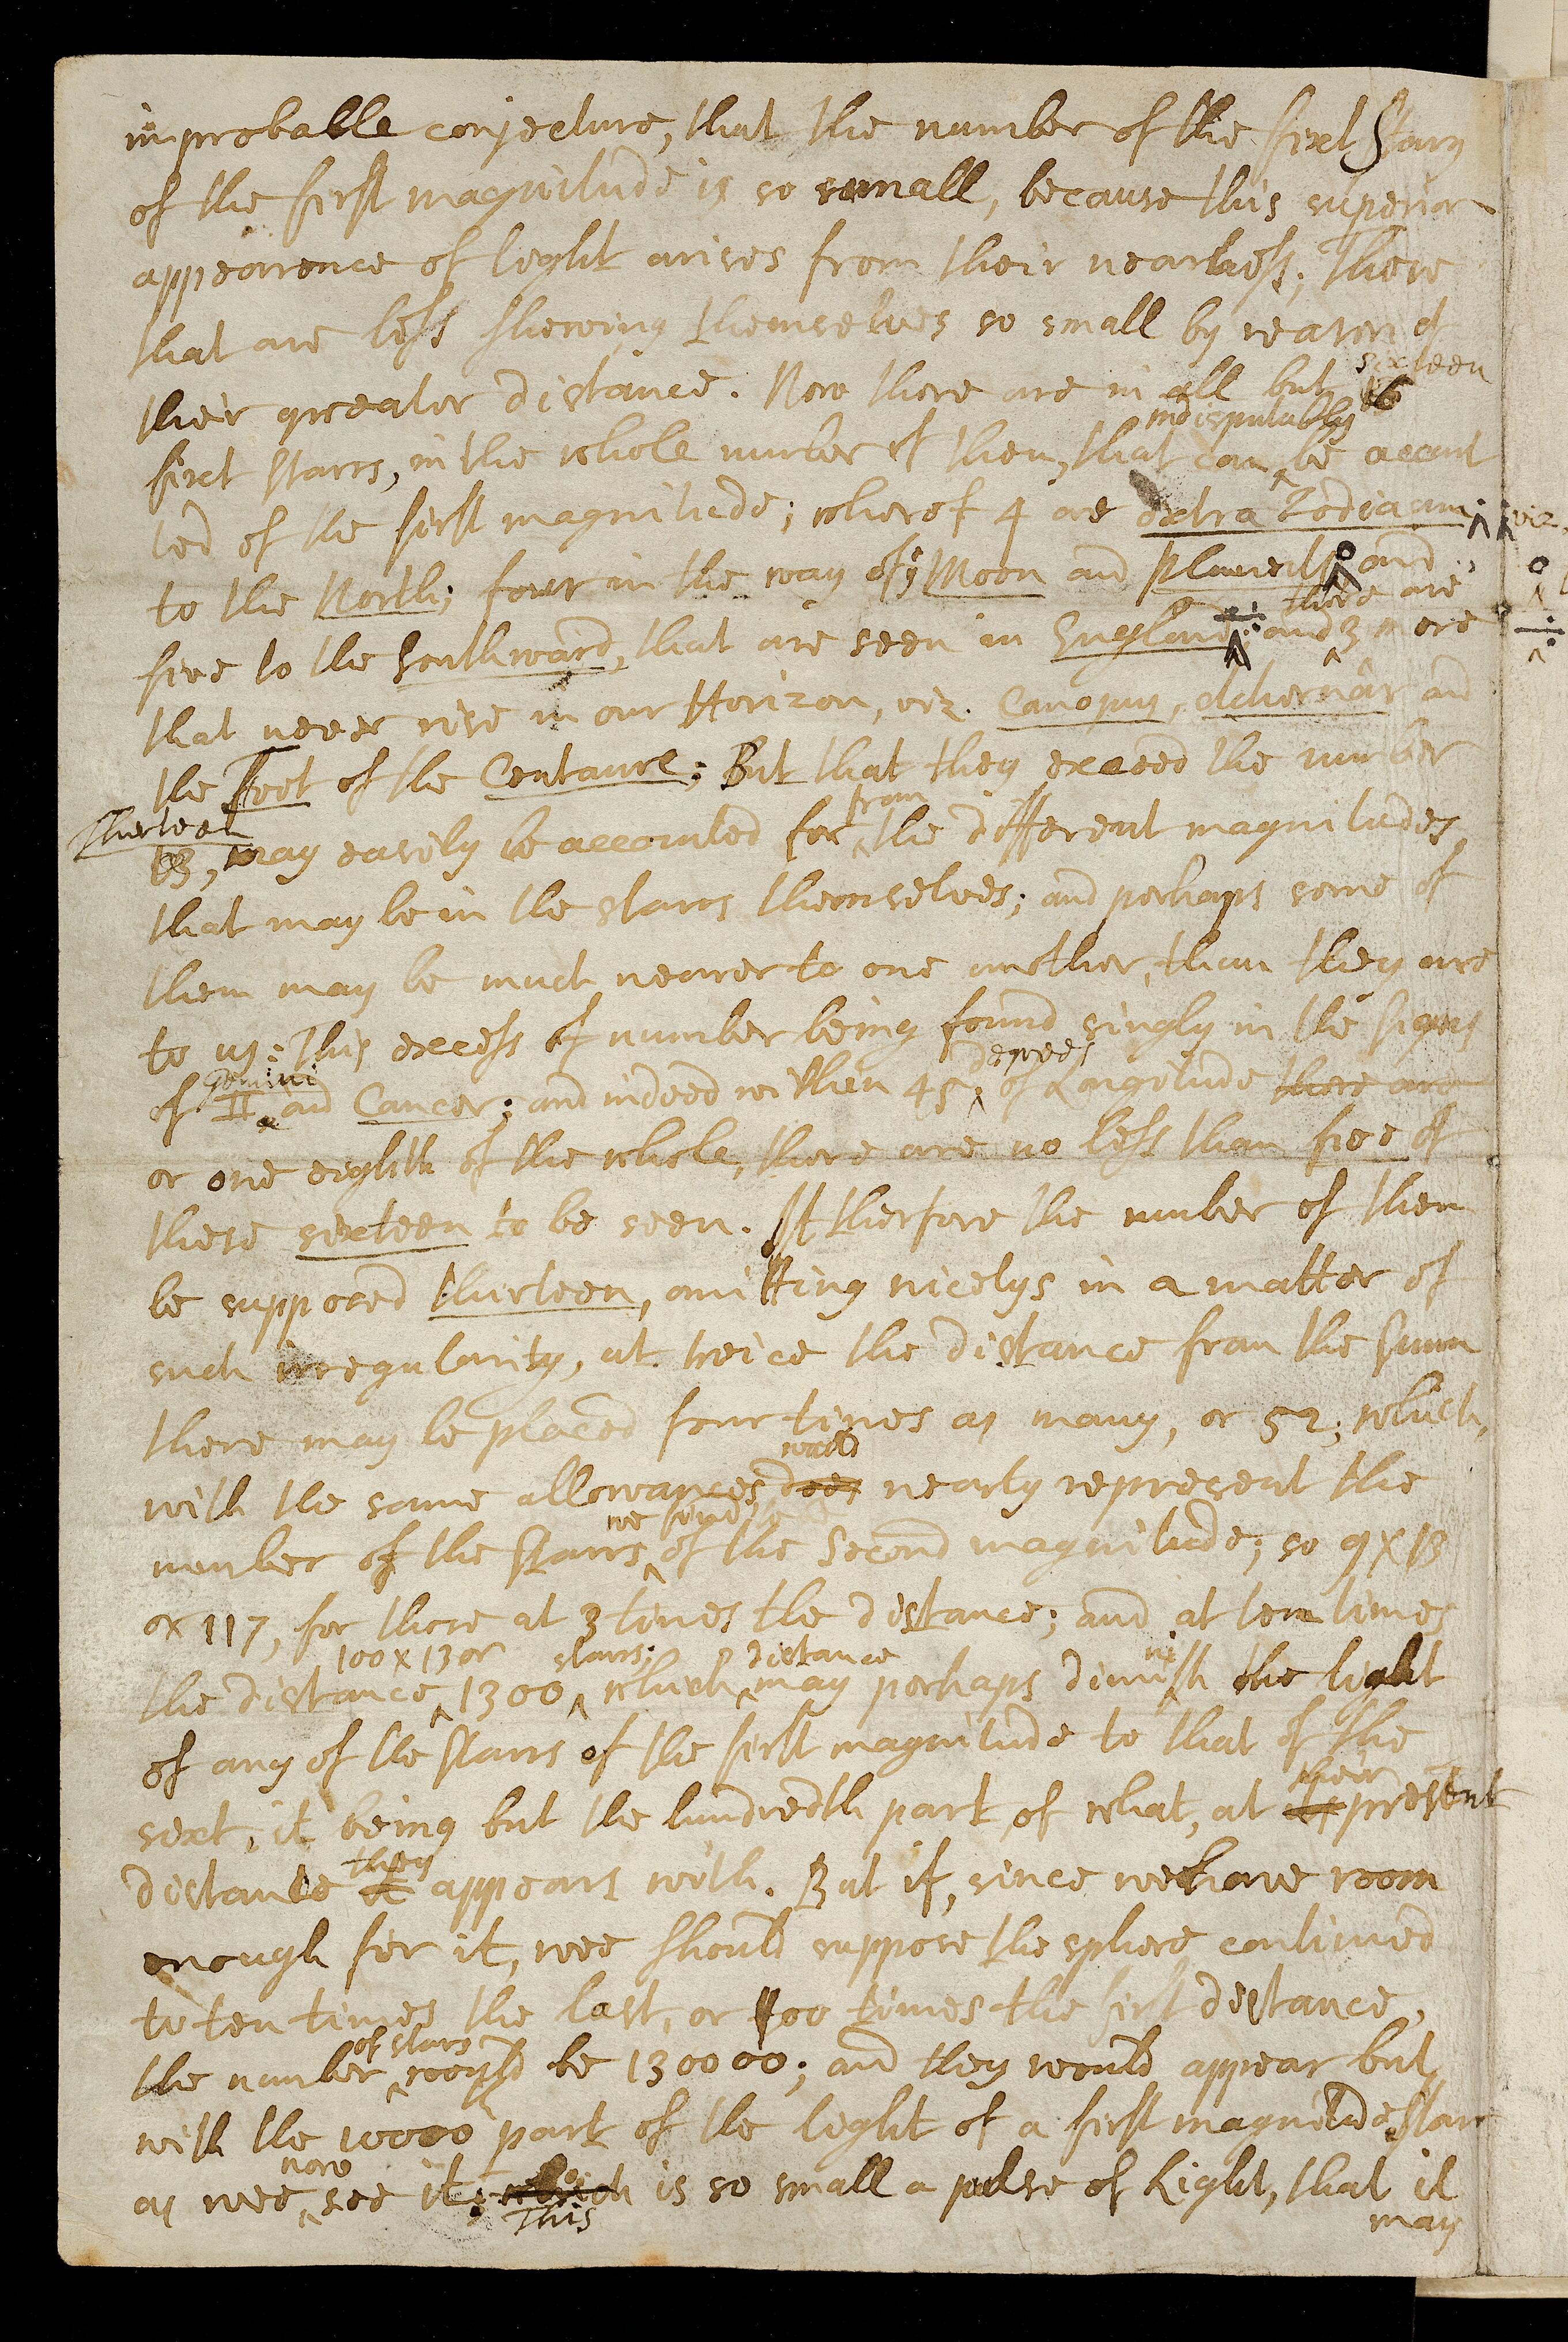 improbable conjecture, that the number of the fixt Stars
of the first magnitude is so small, because this superior
appearence of light arises from their nearness; those
that are less shewing themselves so small by reason of
their greater distance. Now there are in all but sixteen 16
fixt Starrs, in the whole number of them, that can indisputably be accoun
ted of the first magnitude; wherof 4 are extra Zodiacum viz.
to the North; four in the way of ye Moon and Planets and
five to the Southward, that are seen in England: and there are 3 more
that never rise in our Horizon, viz. Canopus, Achernâr and
the Foot of the Centaure; But that they exceed the number
thirteen 13, may easily be accounted for from the different magnitudes,
that may be in the starrs themselves; and perhaps some of
them may be much nearer to one another, than they are
to us: This excess of number being found singly in the Signs
of Gemini II and Cancer; and indeed within 45 degrees of Longitude there are
or one eighth of the whole, there are no less than five of
these sixteen to be seen. If therfore the number of them
be supposed thirteen, omitting nicetys in a matter of
such irregularity, at twice the distance from the Sunn
there may be placed four times as many, or 52; which,
with the same allowances, would does nearly represent the
number of the Starrs we find to be of the Second magnitude; so 9 x 13
or 117, for those at 3 times the distance; and at ten times
the distance 100 x 13 or 1300 starrs; which distance may perhaps diminish the light
of any of the Starrs of the first magnitude to that of the
sixt, it being but the hundredth part of what, at their its present
distance they it appears with. But if, since we have room
enough for it, wee should suppose the sphere continued
to ten times the last, or 100 times the first distance,
the number of stars would be 130000; and they would appear but
with the 10000 part of the light of a first magnitude Starr
as wee now see it: which This is so small a pulse of Light, that it
may